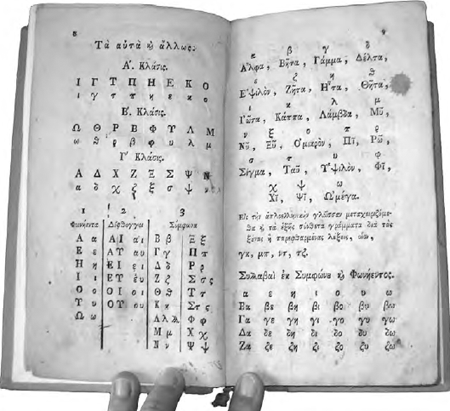 8
Τὰ αὐτὰ ϗ ἄλλως.
Α'. Κλάσις.
Ι Γ Τ Π Η Ε Κ Ο
ι γ τ π η ε κ ο
Β'. Κλάσις.
Ω Θ Ρ Β Φ Υ Λ Μ
ω ϑ ρ β φ υ λ μ
Γ' Κλάσις.
Α Δ Χ Ζ Ξ Σ Ψ Ν
α δ χ ζ ξ σ ψ ν
1 2 3
Φωνήεντα Δίφθογγοι Σύμφωνα
Α α ΑΙ αι Β β Ξ ξ
Ε ε ΑΥ αυ Γ γ Π π
Η η ΕΙ ει Δ δ Ρ ρ
Ι ι ΕΥ ευ Ζ ζ Σ σς
Ο ο ΟΙ οι Θ ϑ Τ τ
Υ υ ΟΥ ου Κ κ Στ ς
Ω ω Λ λ Φ φ
Μ μ Χ χ
Ν ν Ψ ψ
9
α β γ δ
Α῎λφα, Βῆτα, Γάμμα, Δέλτα,
ε ζ η ϑ
Ε᾿ψιλὸν, Ζῆτα, Η῏τα, Θῆτα,
ι κ λ μ
Γιῶτα, Κάππα, Λάμβδα, Μῦ,
ν ξ ο π ρ
Νῦ, Ξῦ, Ο᾿μικρὸν, Πῖ, Ρῶ,
σ τ υ φ
Σίγμα, Ταῦ, Υ᾿ψιλὸν, Φῖ,
χ ψ ω
Χῖ, Ψῖ, Ω᾿μέγα.
Εἰς τὴν ἁπλοελληνικὴν γλῶσσαν μεταχειριζόμε-
θα ϗ τὰ ἑξῆς σύνθετα γράμματα διὰ τὰς
ξένας ἢ παρεφθαρμένας λέξεις, οἷον,
γκ, μπ, ντ, τζ.
Συλλαβαὶ ἐκ Συμφώνου ϗ Φωνήεντος.
α ε η ι ο υ ω
Βα βε βη βι βο βυ βω
Γα γε γη γι γο γυ γω
Δα δε δη δι δο δυ δω
Ζα ζε ζη ζι ζο ζυ ζω